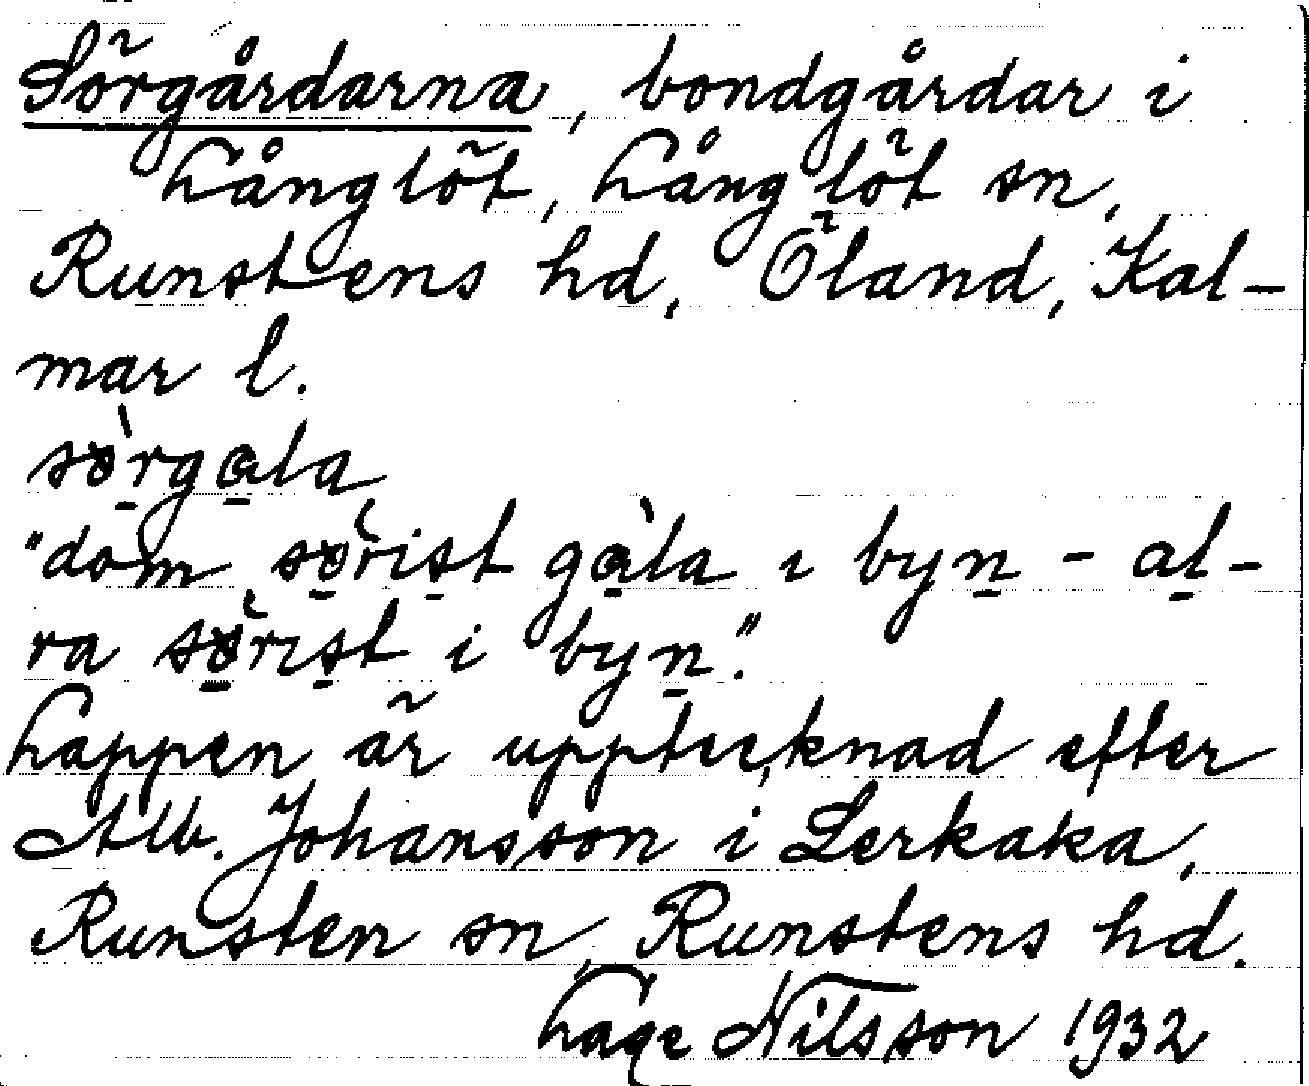 Sörgårdarna, bondgårdar i
Långlöt, Långlöt sn,
Runstens hd, Öland, Kal-
mar l.
sö̀rgala
"dom sö̀rist gàla i byn - al-
ra sö̀rist i byn".
Lappen är upptecknad efter
Alb. Johansson i Lerkaka,
Runsten sn, Runstens hd.
Lage Nilsson 1932